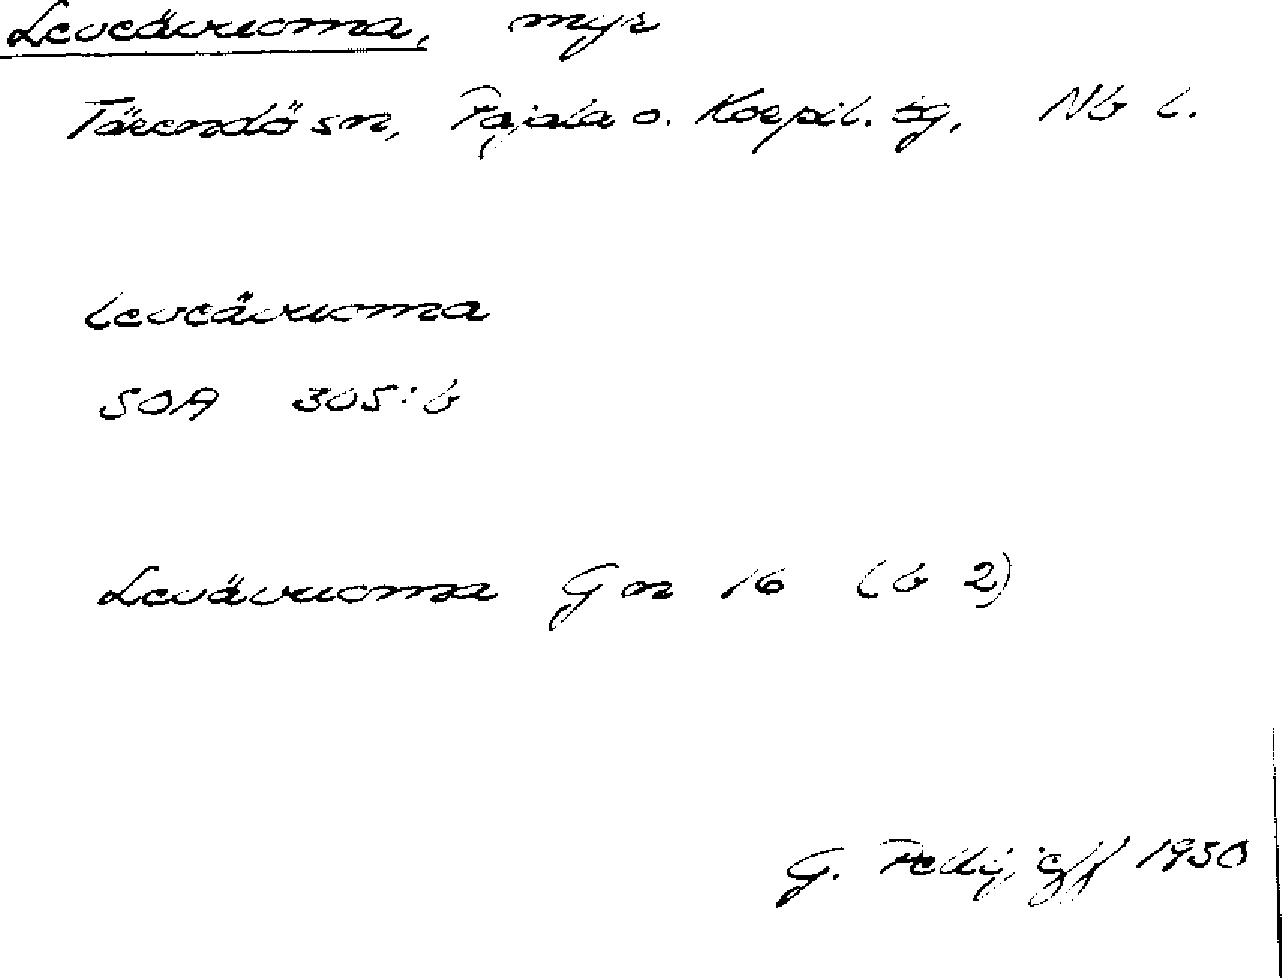 Leveävuoma, myr
Tärendö sn, Pajala o. Korpil. tg, Nb l.
leveävuoma
SOA 305:6
Levävuoma Gn 16 (b 2)
G. Pellijeff 1950